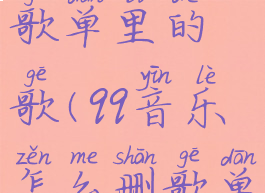 歌单里的
gē yīn lè
歌(99音乐
zěn me shān gē dān
怎么删歌单